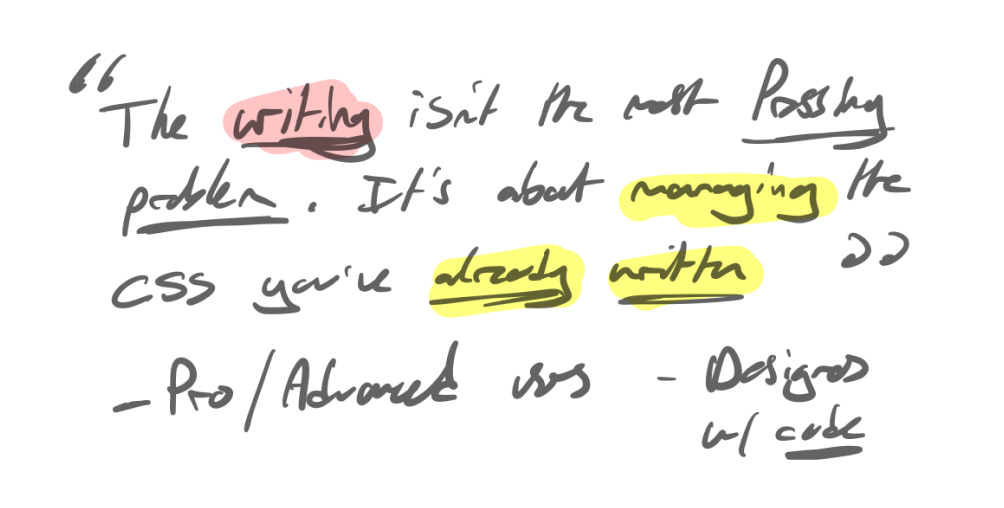 “The writing isn't the most Pressing
problem. It's about managing the
CSS you've already written”
- Pro/Advanced users - Designers
w/ code